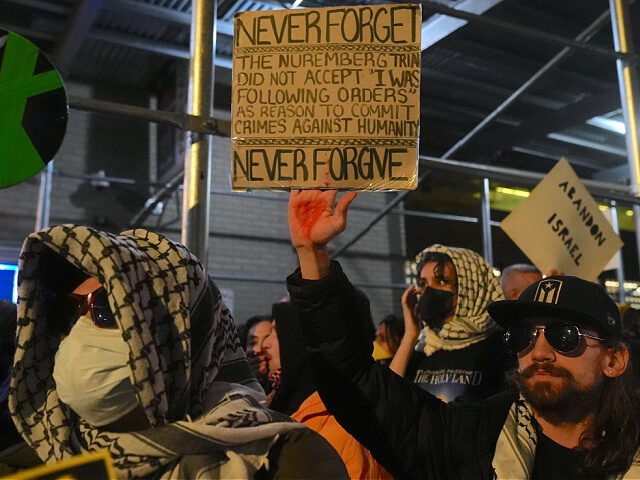 NEVER FORGET
THE NUREMBERG TRIN
DID NOT ACCEPT "I WAS
FOLLOWING ORDERS"
AS REASON TO COMMIT
CRIMES AGAINST HUMANITY
NEVER FORGIVE
ABANDON
ISRAEL
THE HOLY LAND